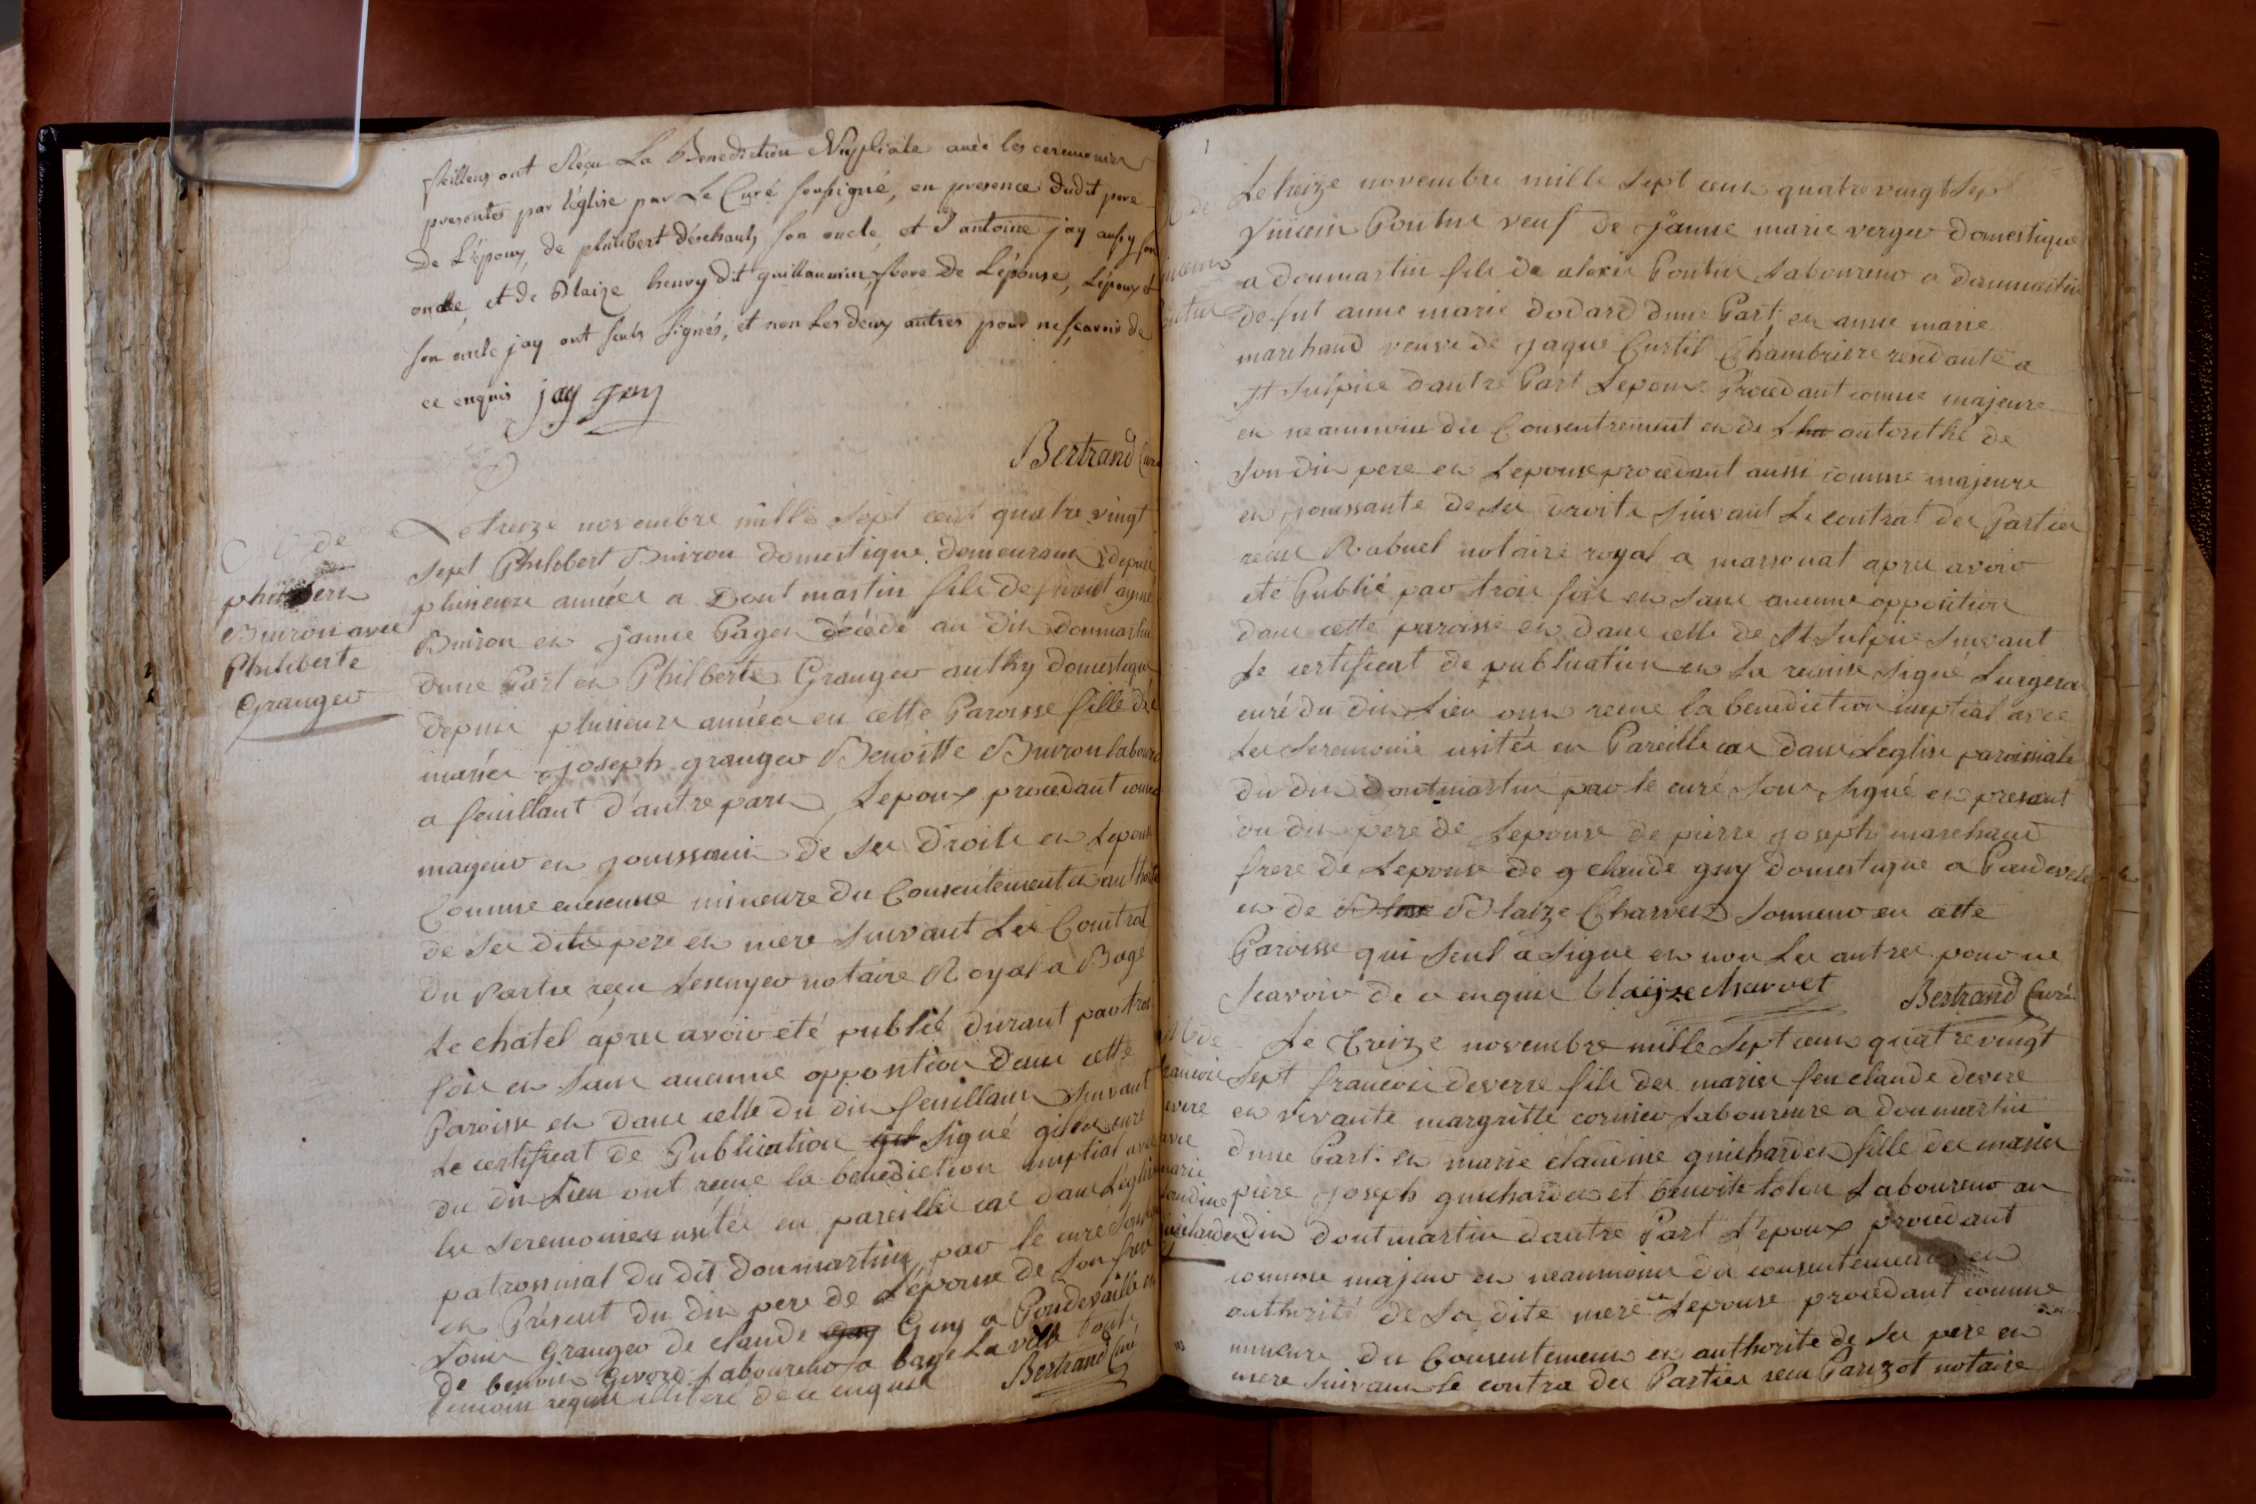 feillens ont Reçu La Benediction Nuptiale avec les ceremonies
presentes par l'église par Le Curé soussigné, en presence dudit pere
De L'époux, de philibert déschault, son oncle, et d'antoine jay aussy son
oncle, et de Blaize henry dit guillaumin, frere De L'épouse, L'époux et
son oncle jay ont seuls signés, et non Les deux autres pour ne scavoir de
ce enquis jay
Bertrand Curé
de
philibert
Buiron avec
Philiberte
Granger
Le treize novembre mille sept cent quatre vingt
sept Philibert Buiron domestique demeurant depuis
plusieurs années a Dont martin fils de
Buiron et janne Pagen décédé au dit donmartin
dune Part et Philberte Granger domestique
depuis plusieurs années en cette Paroisse fille de
mariés joseph granger Benoitte Buiron labour
a feuillant d'autre part Lepoux procedant comme
mageur et jouissant de ses Droits et Lepouse
Comme mineure du Consentement et authorité
de ses dits pere et mere suivant Les Contrat
du Partie reçu notaire Royal a Bagé
Le chatel apres avoir été publié durant par trois
fois et sans aucunne opposition dans cette
Paroisse et dans celle du dit feuillant suivant
Le certificat de Publication signé curé
du dit Lieu ont recue la benediction nuptial avec
les seremonies usitée en pareille cas dans Leglise
patrossinal du dit donmartin par le curé
en Présent du dit pere de Lépouse de son frere
Louis Granger de claude Guy a Pondevaille et
de benoit Gevord Laboureur a bage La ville touts
temoins requis illiteré de ce enquis Bertrand Curé
1
Le treize novembre mille sept cent quatre vingt sept
Vincein Pontus veuf de janne marie verger domestique
a donmartin fils de alexis Pontus Laboureur a donmartin
defut anne marie dodard dune Part, et anne marie
marchand veuve de jaque Curtil Chambriere residante a
St Sulpice dautre Part Lepoux Procedant comme majeure
et neanmoins du Consentrement et de autorithé de
son dit pere et Lepouse procedant aussi comme majeure
et jouissante de ses droits suivant Le contrat des Parties
recue Rabuel notaire royal a marsonat apres avoir
eté Publié par trois fois et sans aucunne opposition
dans cette paroisse et dans celle de St Sulpice suivant
Le certificat de publication et la remise signé
curé du dit Lieu ont recue la benediction nuptial avec
Les seremonie usitée en Pareille cas dans Leglise paroissiale
du dit Dontmartin par le curé sous signé en present
du dit pere de Lepouse de pierre joseph marchand
frere de Lepouse de claude guy domestique a Pondevele
et de Blaize Charvet Sonneur en cette
Paroisse qui Seul a signé et non Les autres pour ne
scavoir de ce enquis blaize charvet Bertrand Curé
Le Treize novembre mille sept cent quatre vingt
sept francois deverre fils des mariés feu claude devere
et vivante margritte cornier Laboureure a donmartin
dune Part. et marie claudine guichardet fille des mariés
piere joseph guichardet et benoite tolon Laboureur au
dit dontmartin dautre Part L'epoux procedant
comme majeur et neanmoins du consentement et
authorité de sa dite mere et Lepouse procedant comme
mineure du Consentement et authorite de ses pere et
mere suivant le contra des Parties recu Parizot notaire